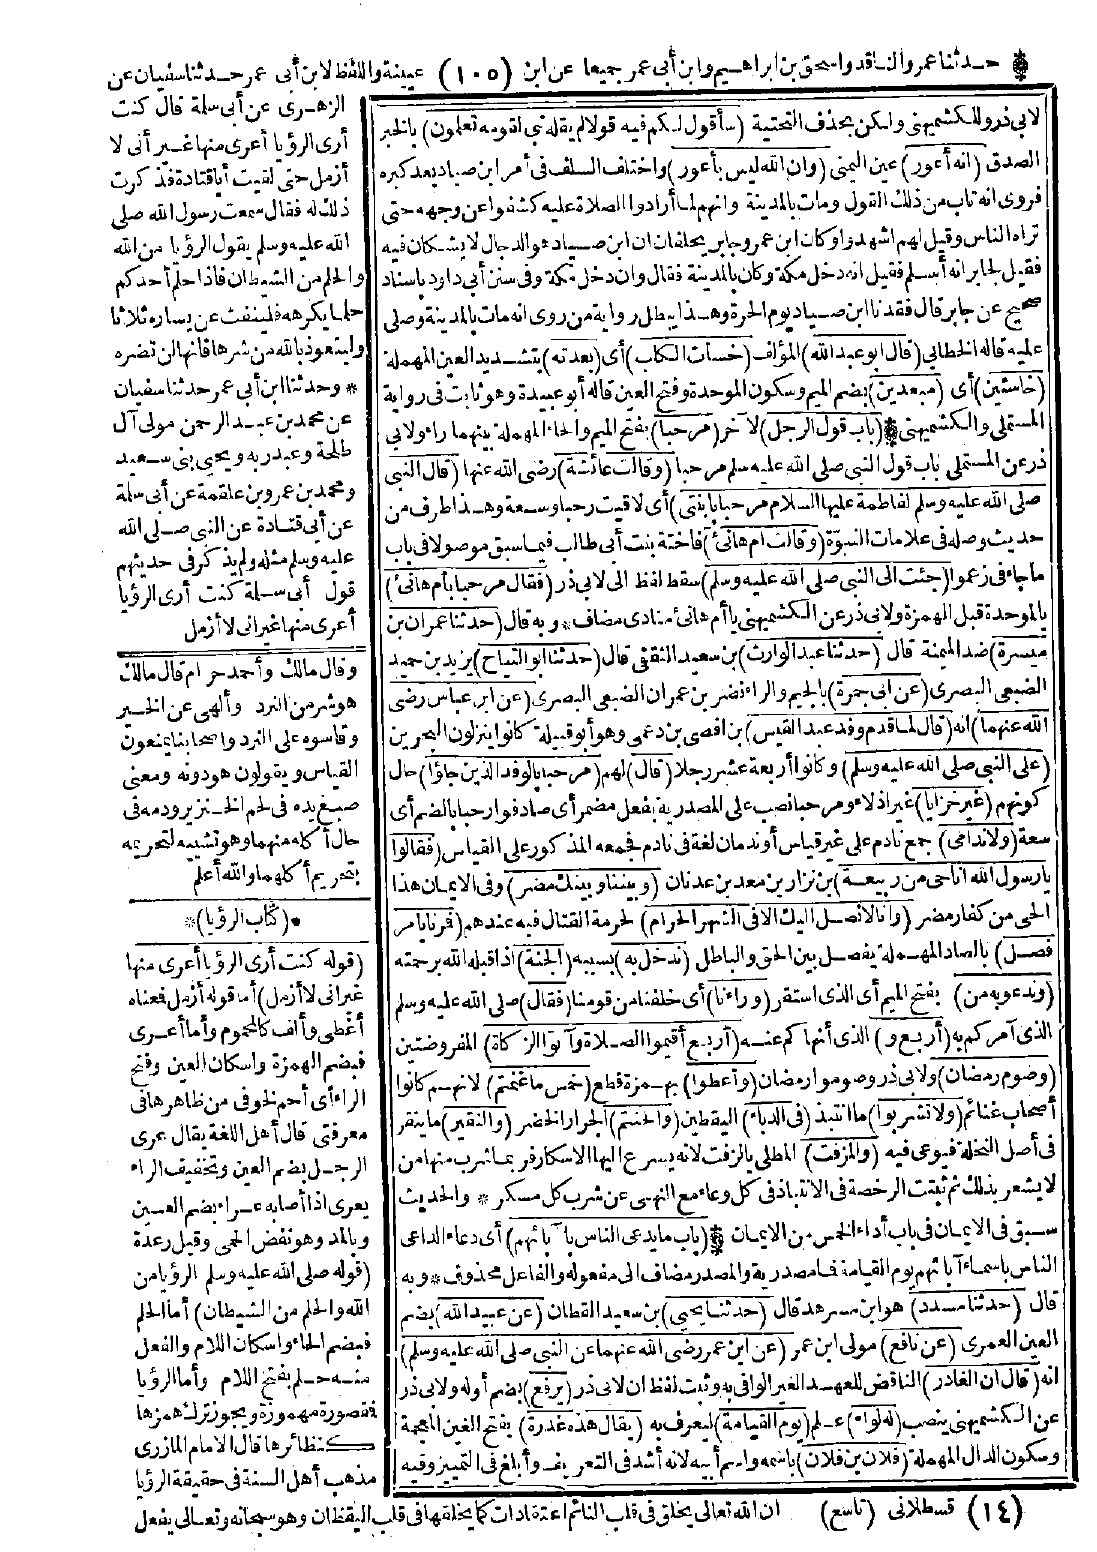 حدثنا عمرو الناقد واسحق بن ابراهيم وابن أبي عمر جميعا عن ابن (١٠٥) عيينة واللفظ لابن أبى عمر حدثنا سفيان عن
لابى ذر وللكشميهنى ولكن بحذف التحتية (سأقول لكم فيه قولا لم يقله نبى لقومه تعلمون) بالخبر
الصدق (انه أعور) عين اليمنى (وان الله ليس بأعور) واختلف السلف فى أمر ابن صياد بعد كبره
فروى انه تاب من ذلك القول ومات بالمدينة وانهم لما أرادوا الصلاة عليه كشفوا عن وجهه حتى
تراه الناس وقيل لهم اشهدوا وكان ابن عمر وجابر يحلفان ان ابن صياد هو الدجال لا يشكان فيه
فقيل لجابر انه أسلم فقيل انه دخل مكة وكان بالمدينة فقال وان دخل مكة وفى سنن أبى داود باسناد
صحيح عن جابر قال فقدنا ابن صياد يوم الحرة وهذا يبطل رواية من روى انه مات بالمدينة وصلى
عليه قاله الخطابى (قال ابو عبد الله) المؤلف (خسأت الكلب) أى (بعدته) بتشديد العين المهملة
(خاسئين) أى (مبعدين) بضم الميم وسكون الموحدة وفتح العين قاله أبو عبيدة وهو ثابت فى رواية
المستملى والكشميهنى (باب قول الرجل) لآخر (مرحبا) بفتح الميم والحاء المهملة بينهما راء ولابى
ذر عن المستملى باب قول النبى صلى الله عليه وسلم مرحبا (وقالت عائشة) رضى الله عنها (قال النبى
صلى الله عليه وسلم لفاطمة عليها السلام مرحبا بابنتى) أى لاقيت رحبا وسعة وهذا طرف من
حديث وصله فى علامات النبوة (وقالت ام هانئ) فاختة بنت أبى طالب فيما سبق موصولا فى باب
ما جاء فى زعموا (جئت الى النبى صلى الله عليه وسلم) سقط لفظ الى لابى ذر (فقال مرحبا بأم هانئ)
بالموحدة قبل الهمزة ولابى ذر عن الكشميهنى يا أم هانئ منادى مضاف * وبه قال (حدثنا عمران بن
ميسرة) ضد الميمنة قال (حدثنا عبد الوارث) بن سعيد الثقفى قال (حدثنا ابو التياح) يزيد بن حميد
الضبعى البصرى (عن ابى جمرة) بالجيم والراء نضر بن عمران الضبعى البصرى (عن ابن عباس رضى
الله عنهما) انه (قال لما قدم وفد عبد القيس) بن افصى بن دعمى وهو أبو قبيلة كانوا ينزلون البحرين
(على النبى صلى الله عليه وسلم) وكانوا أربعة عشر رجلا (قال) لهم (مرحبا بالوفد الذين جاؤا) حال
كونهم (غير خزايا) غير اذلاء ومرحبا نصب على المصدرية بفعل مضمر أى صادفوا رحبا بالضم أى
سعة (ولا ندامى) جمع نادم على غير قياس أو ندمان لغة فى نادم فجمعه المذكور على القياس (فقالوا
يا رسول الله انا حى من ربيعة) بن نزار بن معد بن عدنان (وبيننا وبينك مضر) وفى الايمان هذا
الحى من كفار مضر (وانا لا نصل اليك الا فى الشهر الحرام) لحرمة القتال فيه عندهم (فرنا بامر
فصل) بالصاد المهملة يفصل بين الحق والباطل (ندخل به) بسببه (الجنة) اذا قبله الله برحمته
(وندعو به من) بفتح الميم أى الذى استقر (وراءنا) أى خلفنا من قومنا (فقال) صلى الله عليه وسلم
الذى آمركم به (أربع و) الذى أنهاكم عنه (أربع أقيموا الصلاة وآتوا الزكاة) المفروضتين
(وصوم رمضان) ولابى ذر وصوموا رمضان (وأعطوا) بهمزة قطع (خمس ما غنمتم) لانهم كانوا
أصحاب غنائم (ولا تشربوا) ما انتبذ (فى الدباء) اليقطين (والحنتم) الجرار الخضر (والنقير) ما ينقر
فى أصل النخلة فيوعى فيه (والمزفت) المطلى بالزفت لانه يسرع اليها الاسكار فربما شرب منها من
لا يشعر بذلك ثم ثبتت الرخصة فى الانتباذ فى كل وعاء مع النهى عن شرب كل مسكر * والحديث
سبق فى الايمان فى باب أداء الخمس من الايمان (باب ما يدعى الناس بآبائهم) أى دعاء الداعى
الناس باسماء آبائهم يوم القيامة فما مصدرية والمصدر مضاف الى مفعوله والفاعل محذوف * وبه
قال (حدثنا مسدد) هو ابن مسرهد قال (حدثنا يحيى) بن سعيد القطان (عن عبيد الله) بضم
العين العمرى (عن نافع) مولى ابن عمر (عن ابن عمر رضى الله عنهما عن النبى صلى الله عليه وسلم)
انه (قال ان الغادر) الناقض للعهد الغير الوافى به وثبت لفظ ان لابى ذر (يرفع) بضم أوله ولابى ذر
عن الكشميهنى ينصب (له لواء) علم (يوم القيامة) ليعرف به (يقال هذه غدرة) بفتح الغين المعجمة
وسكون الدال المهملة (فلان بن فلان) باسمه واسم أبيه لانه أشد فى التعريف وأبلغ فى التمييز وفيه
الزهرى عن أبى سلمة قال كنت
أرى الرؤيا أعرى منها غير أنى لا
أزمل حتى لقيت أبا قتادة فذكرت
ذلك له فقال سمعت رسول الله صلى
الله عليه وسلم يقول الرؤيا من الله
والحلم من الشيطان فاذا حلم أحدكم
حلما يكرهه فلينفث عن يساره ثلاثا
وليتعوذ بالله من شرها فانها لن تضره
* وحدثنا ابن أبى عمر حدثنا سفيان
عن محمد بن عبد الرحمن مولى آل
طلحة وعبد ربه ويحيى بنى سعيد
ومحمد بن عمرو بن علقمة عن أبى سلمة
عن أبى قتادة عن النبى صلى الله
عليه وسلم مثله ولم يذكر فى حديثهم
قول أبى سلمة كنت أرى الرؤيا
أعرى منها غير انى لا أزمل
وقال مالك وأحمد حرام قال مالك
هو شر من النرد وألهى عن الخير
وقاسوه على النرد واصحابنا يمنعون
القياس ويقولون هو دونه ومعنى
صبغ يده فى لحم الخنزير ودمه فى
حال أكله منهما وهو تشبيه لتحريمه
بتحريم أكلهما والله أعلم
*(كتاب الرؤيا)*
(قوله كنت أرى الرؤيا أعرى منها
غير انى لا أزمل) أما قوله أزمل فمعناه
أغطى وألف كالمحموم وأما أعرى
فبضم الهمزة واسكان العين وفتح
الراء أى أحم لخوفى من ظاهرها فى
معرفتى قال أهل اللغة يقال عرى
الرجل بضم العين وتخفيف الراء
يعرى اذا أصابه عراء بضم العين
وبالمد وهو نفض الحمى وقيل رعدة
(قوله صلى الله عليه وسلم الرؤيا من
الله والحلم من الشيطان) أما الحلم
فبضم الحاء واسكان اللام والفعل
منه حلم بفتح اللام وأما الرؤيا
فمقصورة مهموزة ويجوز ترك همزها
كنظائرها قال الامام المازرى
مذهب أهل السنة فى حقيقة الرؤيا
(١٤) قسطلانى (تاسع) ان الله تعالى يخلق فى قلب النائم اعتقادات كما يخلقها فى قلب اليقظان وهو سبحانه وتعالى يفعل